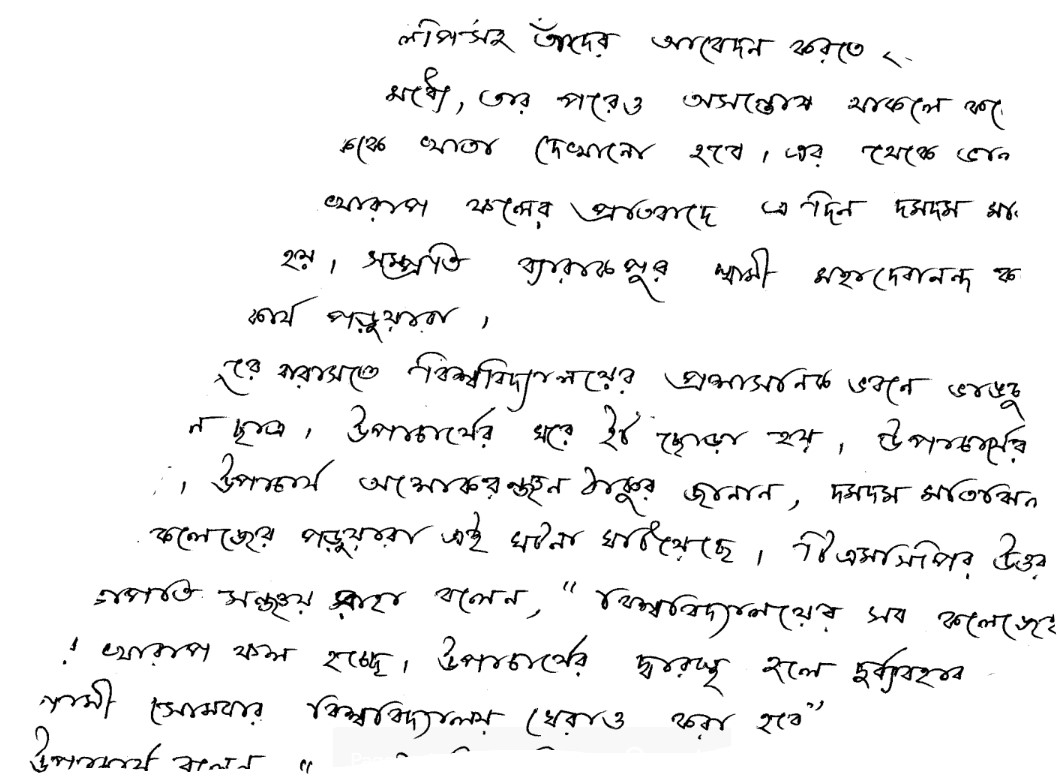 লিপিসহ তাঁদের আবেদন করতে হ
মধ্যে, তার পরেও অসন্তোষ থাকলে কলে
কে খাতা দেখানো হবে। এর থেকে ভাল
খারাপ ফলের প্রতিবাদে এ দিন দমদম মতি
হয়। সম্প্রতি ব্যারাকপুর স্বামী মহাদেবানন্দ ক
কার্য পড়ুয়ারা।
রে বারাসতে বিশ্ববিদ্যালয়ের প্রশাসনিক ভবনে ভাঙচু
ন ছাত্র। উপাচার্যের ঘরে ইট ছোড়া হয়। উপাচার্যের
। উপাচার্য অশোকরঞ্জন ঠাকুর জানান, দমদম মতিঝিল
কলেজের পড়ুয়ারা এই ঘটনা ঘটিয়েছে। টিএমসিপির উত্তর
াপতি সঞ্জয় রাহা বলেন, “বিশ্ববিদ্যালয়ের সব কলেজেই
খারাপ ফল হচ্ছে। উপাচার্যের দ্বারস্থ হলে দুর্ব্যবহার
গামী সোমবার বিশ্ববিদ্যালয় ঘেরাও করা হবে”
উপাচার্য বলেন “